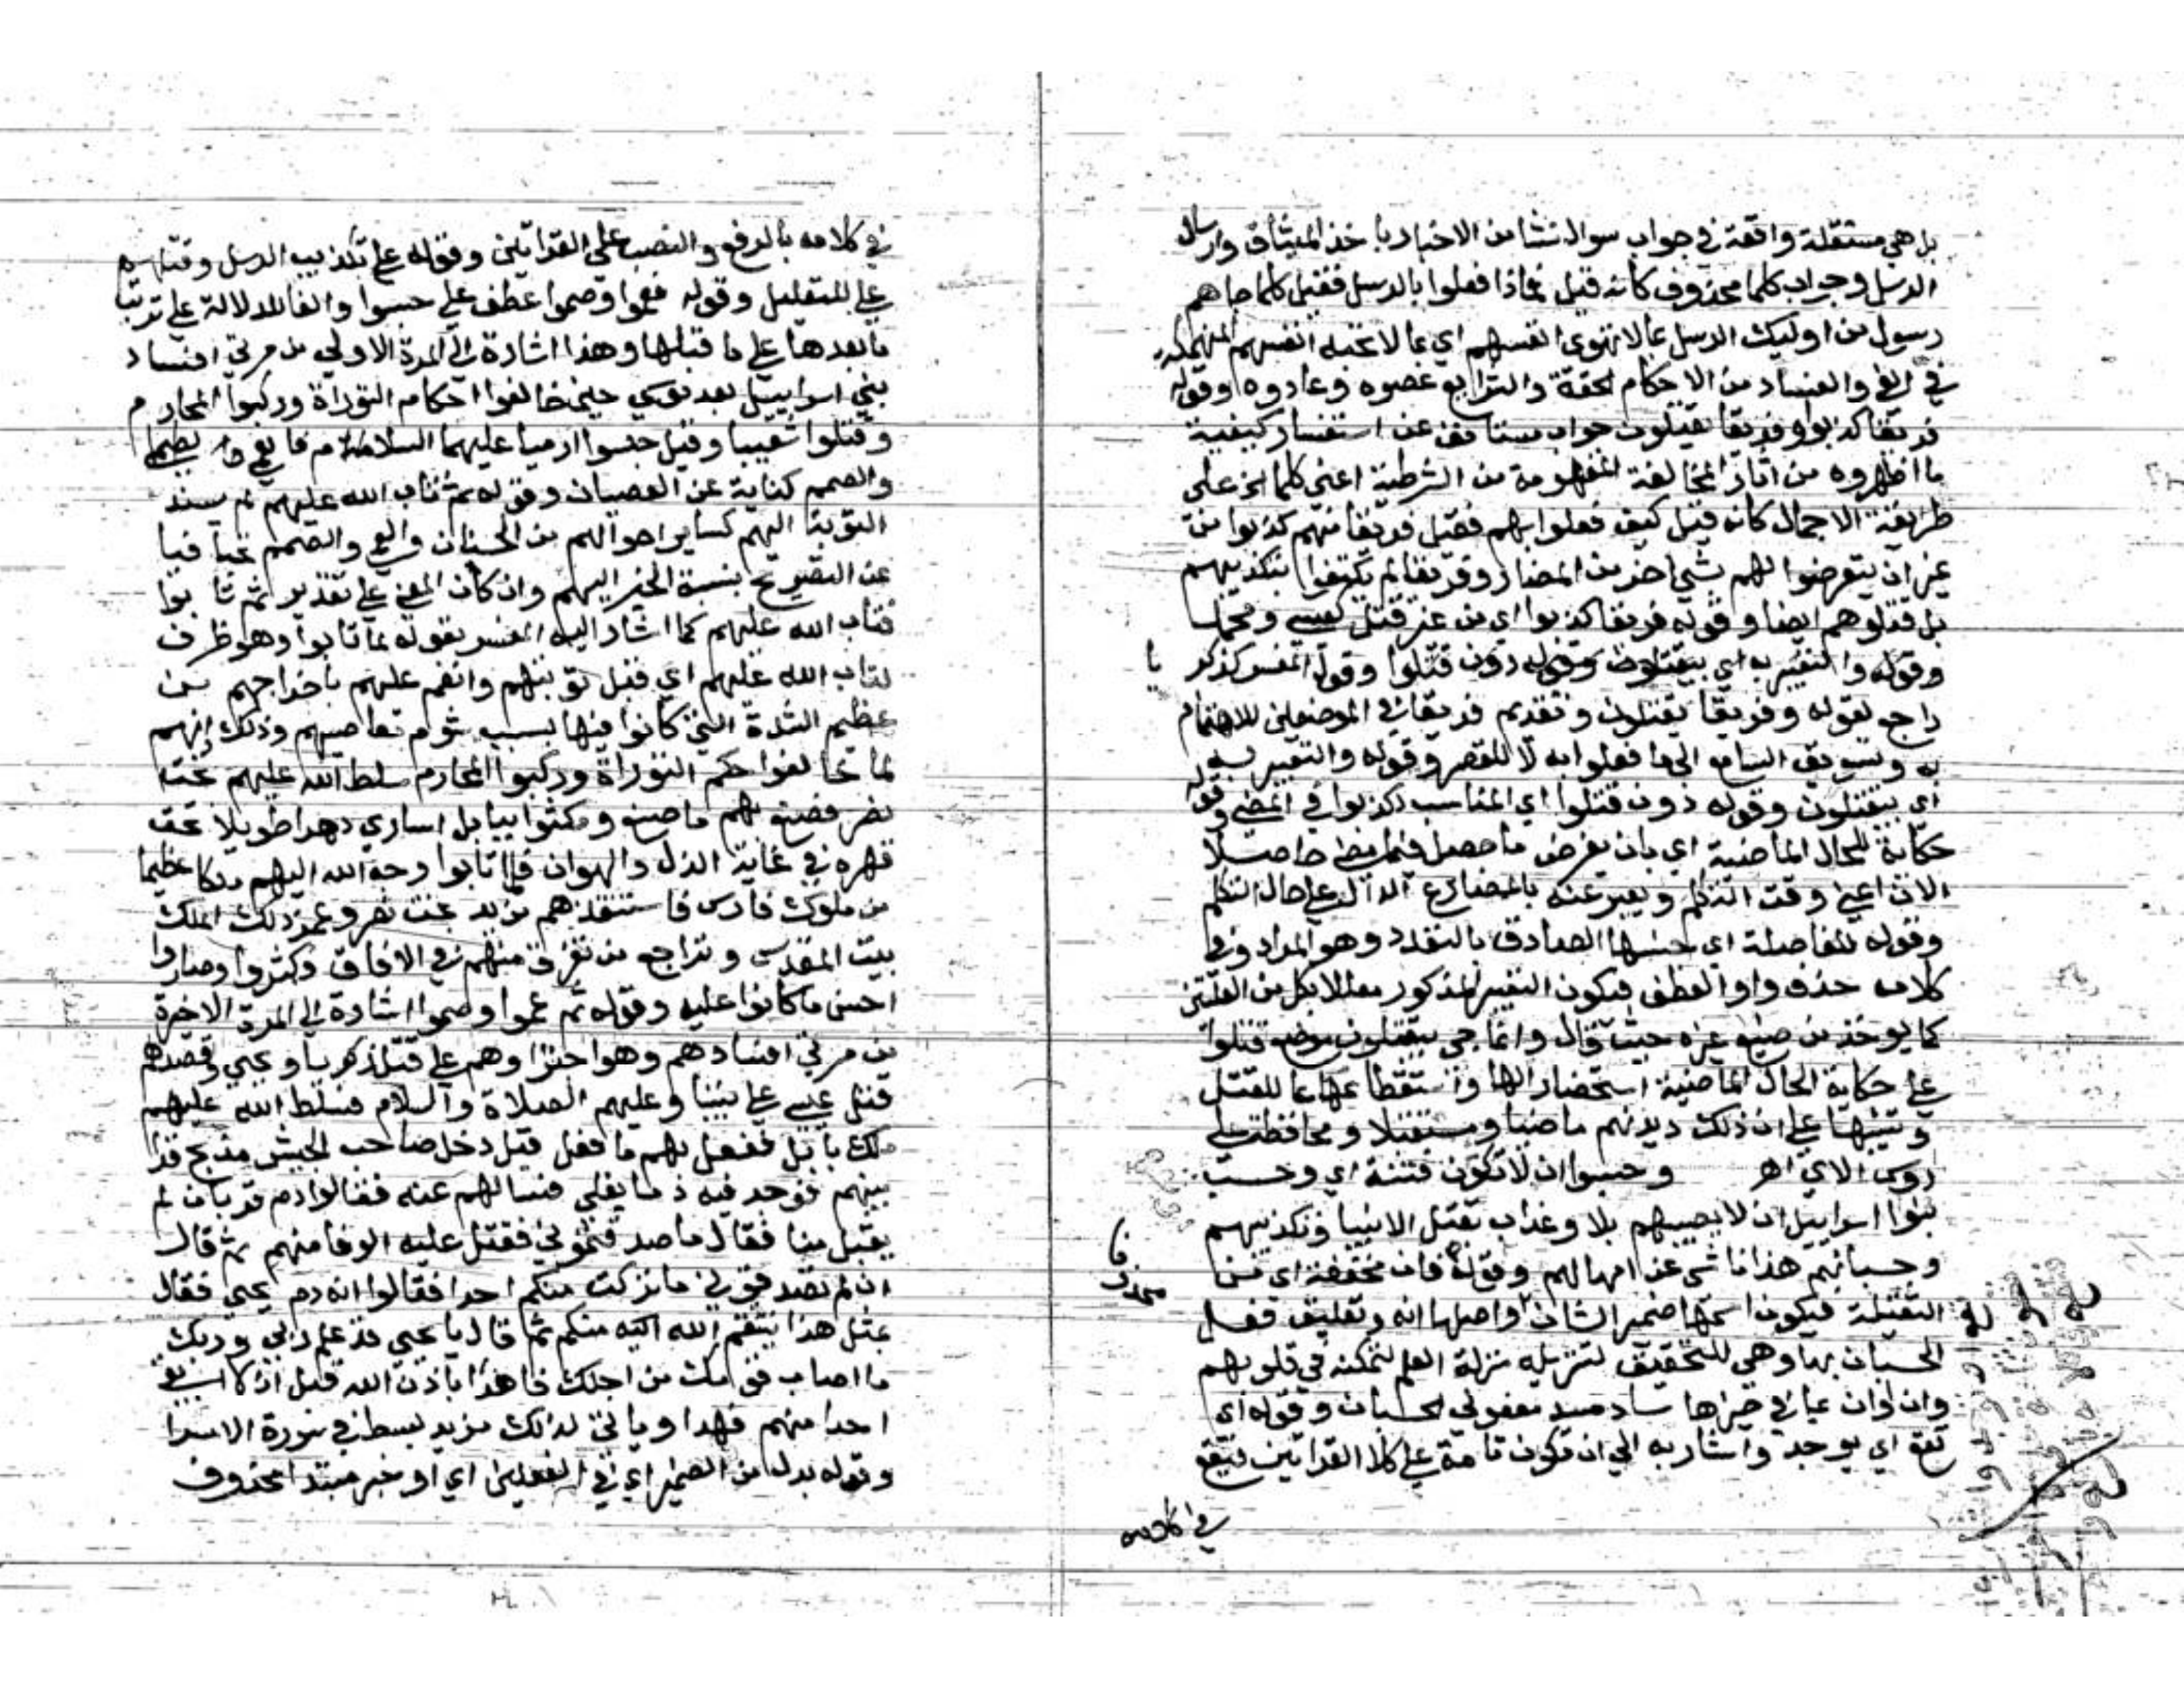 بل هي مستقلة واقعة في جواب سوال نشا من الاخبار باخذ الميثاق وارسال
الرسل وجواب كلما محذوف كانه قيل فماذا فعلوا بالرسل فقيل كلما جاهم
رسول من اوليك الرسل بما لا تهوى انفسهم اي بما لا تحبه انفسهم المنهمكة
في الغي والفساد من الاحكام الحقة والشرايع عصوه وعادوه وقوله
فريقا كذبوا وفريقا يقتلون جواب مستانف عن استفسار كيفية
ما اظهروه من اثار المخالفة المفهومة من الشرطية اعني كلما الخ على
طريقة الاجمال كانه قيل كيف فعلوا بهم فقيل فريقا منهم كذبوا من
غير ان يتعرضوا لهم بشي اخر من المضار وفريقا لم يكتفوا بتكذيبهم
بل قتلوهم ايضا وقوله فريقا كذبوا اي من غير قتل كعيسى ومحمد
وقوله والتعبير به اي بيقتلون وقوله دون قتلوا وقول المفسر كذكريا
راجع لقوله وفريقا يقتلون وتقديم فريقا في الموضعين للاهتمام
به وتشويق السامع الى ما فعلوا به لا للقصر وقوله والتعبير به
اي بيقتلون وقوله دون قتلوا اي المناسب لكذبوا في المضي وقوله
حكاية للحال الماضية اي بان يفرض ما حصل فيما مضى حاصلا
الان اعني وقت التكلم ويعبر عنه بالمضارع الدال على حال التكلم
وقوله للفاصلة اي حسنها الصادق بالتعدد وهو المراد وفي
كلامه حذف واو العطف فيكون التعبير المذكور معللا بكل من العلتين
كما يوخذ من صنيع غيره حيث قال وانما جي بيقتلون موضع قتلوا
على حكاية الحال الماضية استحضارا لها واستفظاعا للقتل
وتنبيها على ان ذلك ديدنهم ماضيا ومستقبلا ومحافظة على
روس الاي اهـ وحسبوا ان لا تكون فتنة اي وحسب
بنوا اسراييل ان لا يصيبهم بلا وعذاب بقتل الانبيا وتكذيبهم
وحسبانهم هذا ناشي عن امهالهم وقوله فان مخففة اي من
الثقيلة فيكون اسمها ضمير الشان محذوفا واصلها انه وتعليق فعل
الحسبان بها وهي للتحقيق لتنزيله منزلة العلم لتمكنه في قلوبهم
وان وان بما في حيزها ساد مسد مفعولي الحسبان وقوله اي
تقع اي يوجد واشار به الى ان تكون تامة على كلا القراتين فتقع
في كلامه
في كلامه بالرفع والنصب على القراتين وقوله على تكذيب الرسل وقتلهم
على للتعليل وقوله فعموا وصموا عطف على حسبوا والفا للدلالة على ترتب
ما بعدها على ما قبلها وهذا اشارة الى المرة الاولى من مرتي افساد
بني اسراييل بعد موسى حين خالفوا احكام التوراة وركبوا المحارم
وقتلوا شعيبا وقيل حبسوا ارميا عليهما السلام
والصمم كناية عن العصيان وقوله ثم تاب الله عليهم لم يسند
التوبة اليهم كساير احوالهم من الحسبان والعمى والصمم تجافيا
عن التصريح بنسبة الخير اليهم وان كان المعنى على تقدير ثم تابوا
فتاب الله عليهم كما اشار اليه المفسر بقوله لما تابوا وهو ظرف
لتاب الله عليهم اي فقبل توبتهم وانعم عليهم باخراجهم من
عظيم الشدة التي كانوا فيها بسبب شوم معاصيهم وذلك انهم
لما خالفوا حكم التوراة وركبوا المحارم سلط الله عليهم بخت
نصر فصنع بهم ما صنع ومكثوا ببابل اسارى دهرا طويلا تحت
قهره في غاية الذل والهوان فلما تابوا وجه الله اليهم ملكا عظيما
من ملوك فارس فاستنقذهم من يد بخت نصر وعمر ذلك الملك
بيت المقدس وتراجع من تفرق منهم في الافاق وكثروا وصاروا
احسن ما كانوا عليه وقوله ثم عموا وصموا اشارة الى المرة الاخيرة
من مرتي افسادهم وهو اجتراوهم على قتل زكريا ويحيى وقصدهم
قتل عيسى على نبينا وعليهم الصلاة والسلام فسلط الله عليهم
ملك بابل ففعل بهم ما فعل قيل دخل صاحب الجيش مذبح
فوجد فيه دما يغلي فسالهم عنه فقالوا دم قربان لم
يقبل منا فقال ما صدقتموني فقتل عليه الوفا منهم ثم قال
ان لم تصدقوني ما تركت منكم احدا فقالوا انه دم يحيى فقال
بمثل هذا ينتقم الله منكم ثم قال يا يحيى قد علم ربي وربك
ما اصاب قومك من اجلك فاهدا باذن الله قبل ان لا ابقي
احدا منهم فهدا وياتي لذلك مزيد بسط في سورة الاسرا
وقوله بدل من الضمير اي في الفعلين اي او خبر مبتدا محذوف